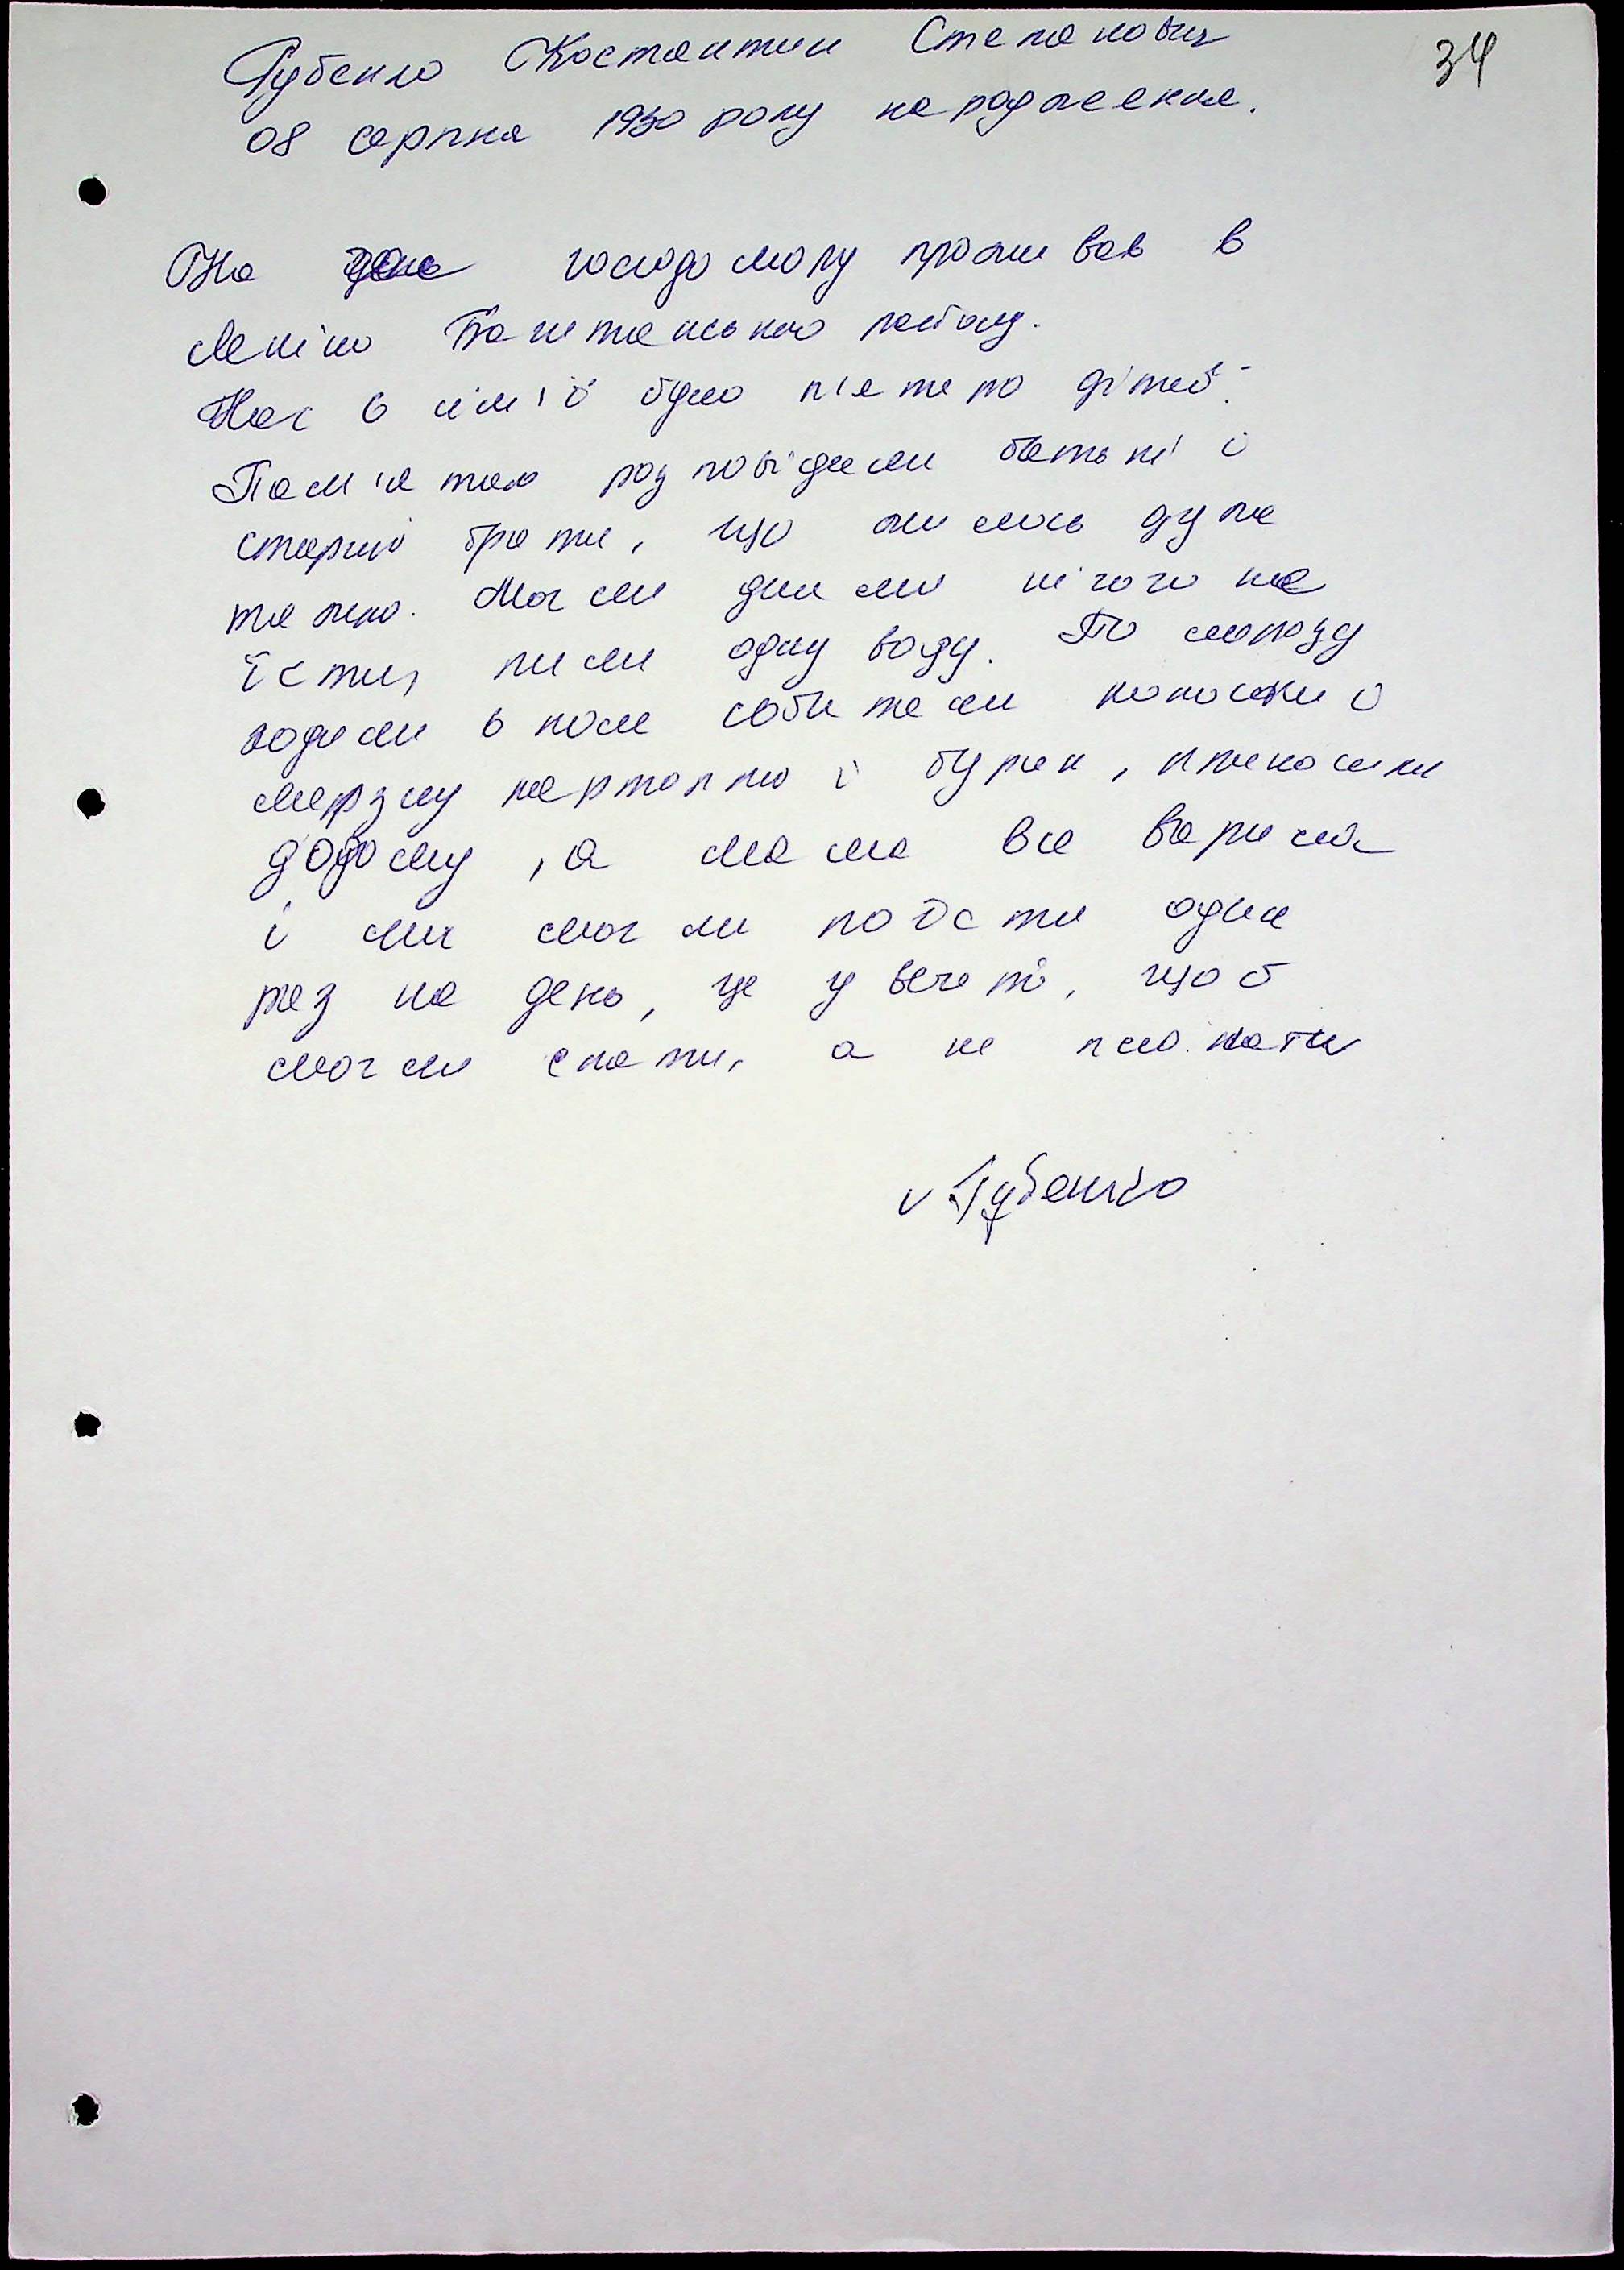 34
Губенко Костянтин Степанович
08 серпня 1930 року народження.
На голодомору проживав в
Леніно Баштанського району.
Нас в сім'ї було п'ятеро дітей.
Пам'ятаю розповідали батькі і
старші брати, що жилось дуже
тяжко. Могли днями нічого не
їсти, пили одну воду. По морозу
ходили в поле собитали колоски і
мерзлу картоплю і буряк, приносили
додому, а мама все варила
і ми могли поїсти один
раз на день, це у вечері, щоб
могли спати, а не плакати
Губенко